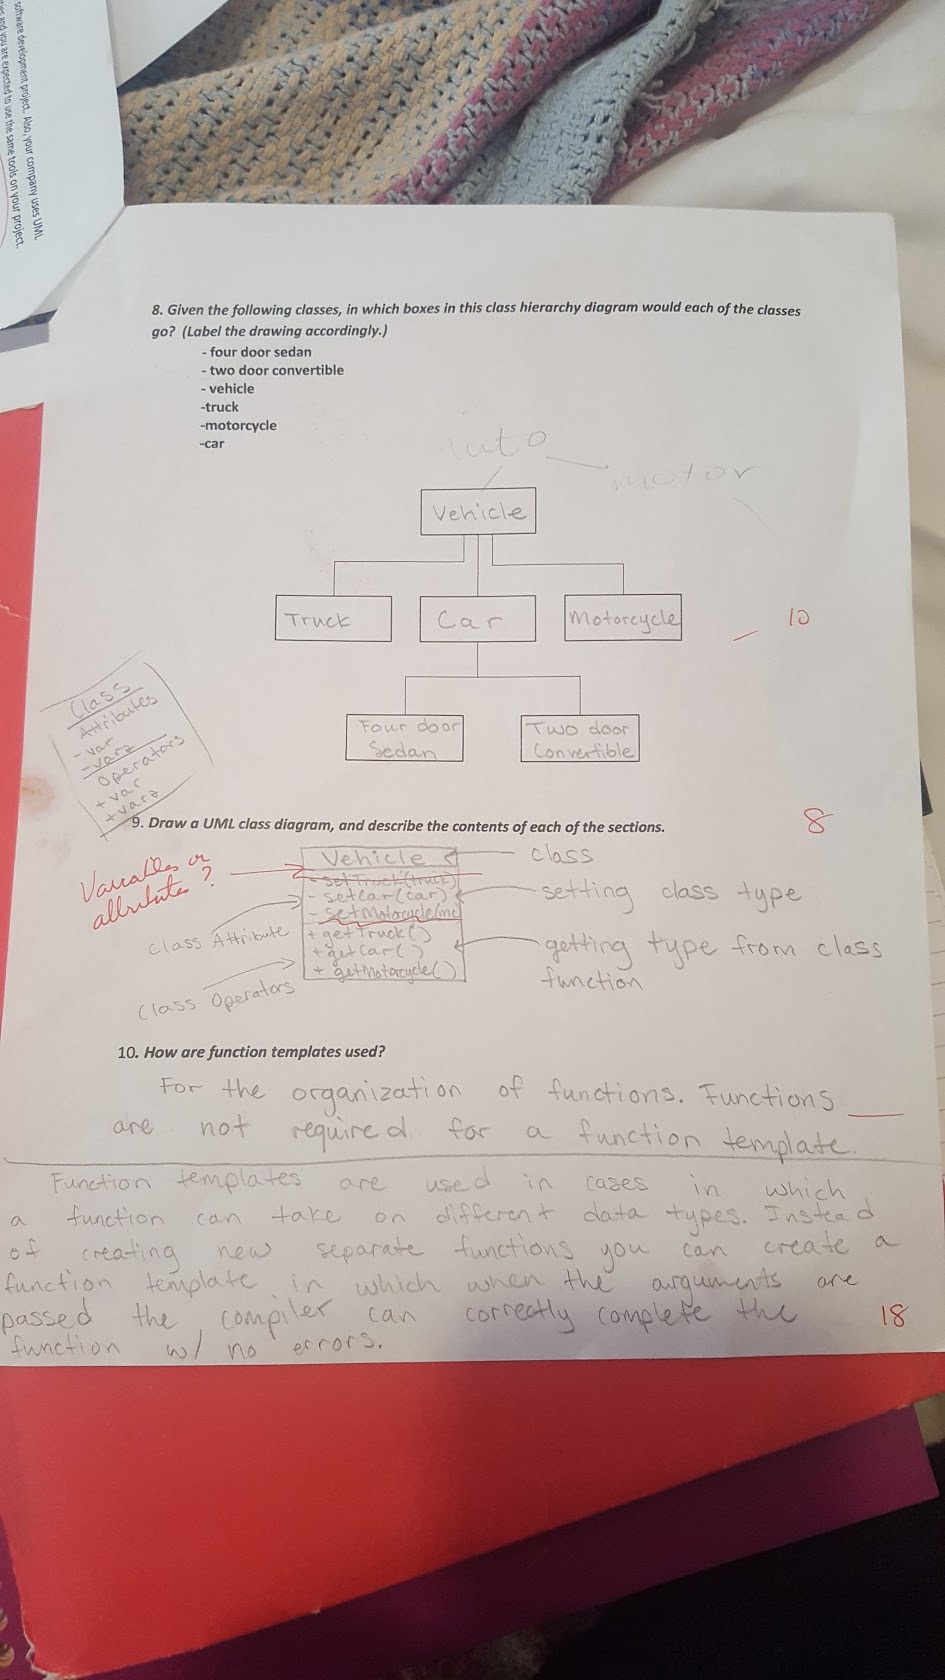 software development project. Also, your company uses UML
and you are expected to use the same tools on your project.
8. Given the following classes, in which boxes in this class hierarchy diagram would each of the classes
go? (Label the drawing accordingly.)
- four door sedan
- two door convertible
- vehicle
-truck
-motorcycle
-car
auto
motor
Vehicle
Truck
Car
Motorcycle
10
Four door
Sedan
Two door
Convertible
Class
Attributes
- var
- var2
Operators
+ var
+ var2
9. Draw a UML class diagram, and describe the contents of each of the sections.
8
Variables or
attributes?
Vehicle
class
- setTruck(truck)
- setCar(car)
- setMotorcycle(mc)
setting class type
Class Attribute
+ getTruck()
+ getCar()
+ getMotorcycle()
getting type from class
function
Class Operators
10. How are function templates used?
For the organization of functions. Functions
are not required for a function template.
Function templates are used in cases in which
a function can take on different data types. Instead
of creating new separate functions you can create a
function template in which when the arguments are
passed the compiler can correctly complete the
18
function w/ no errors.